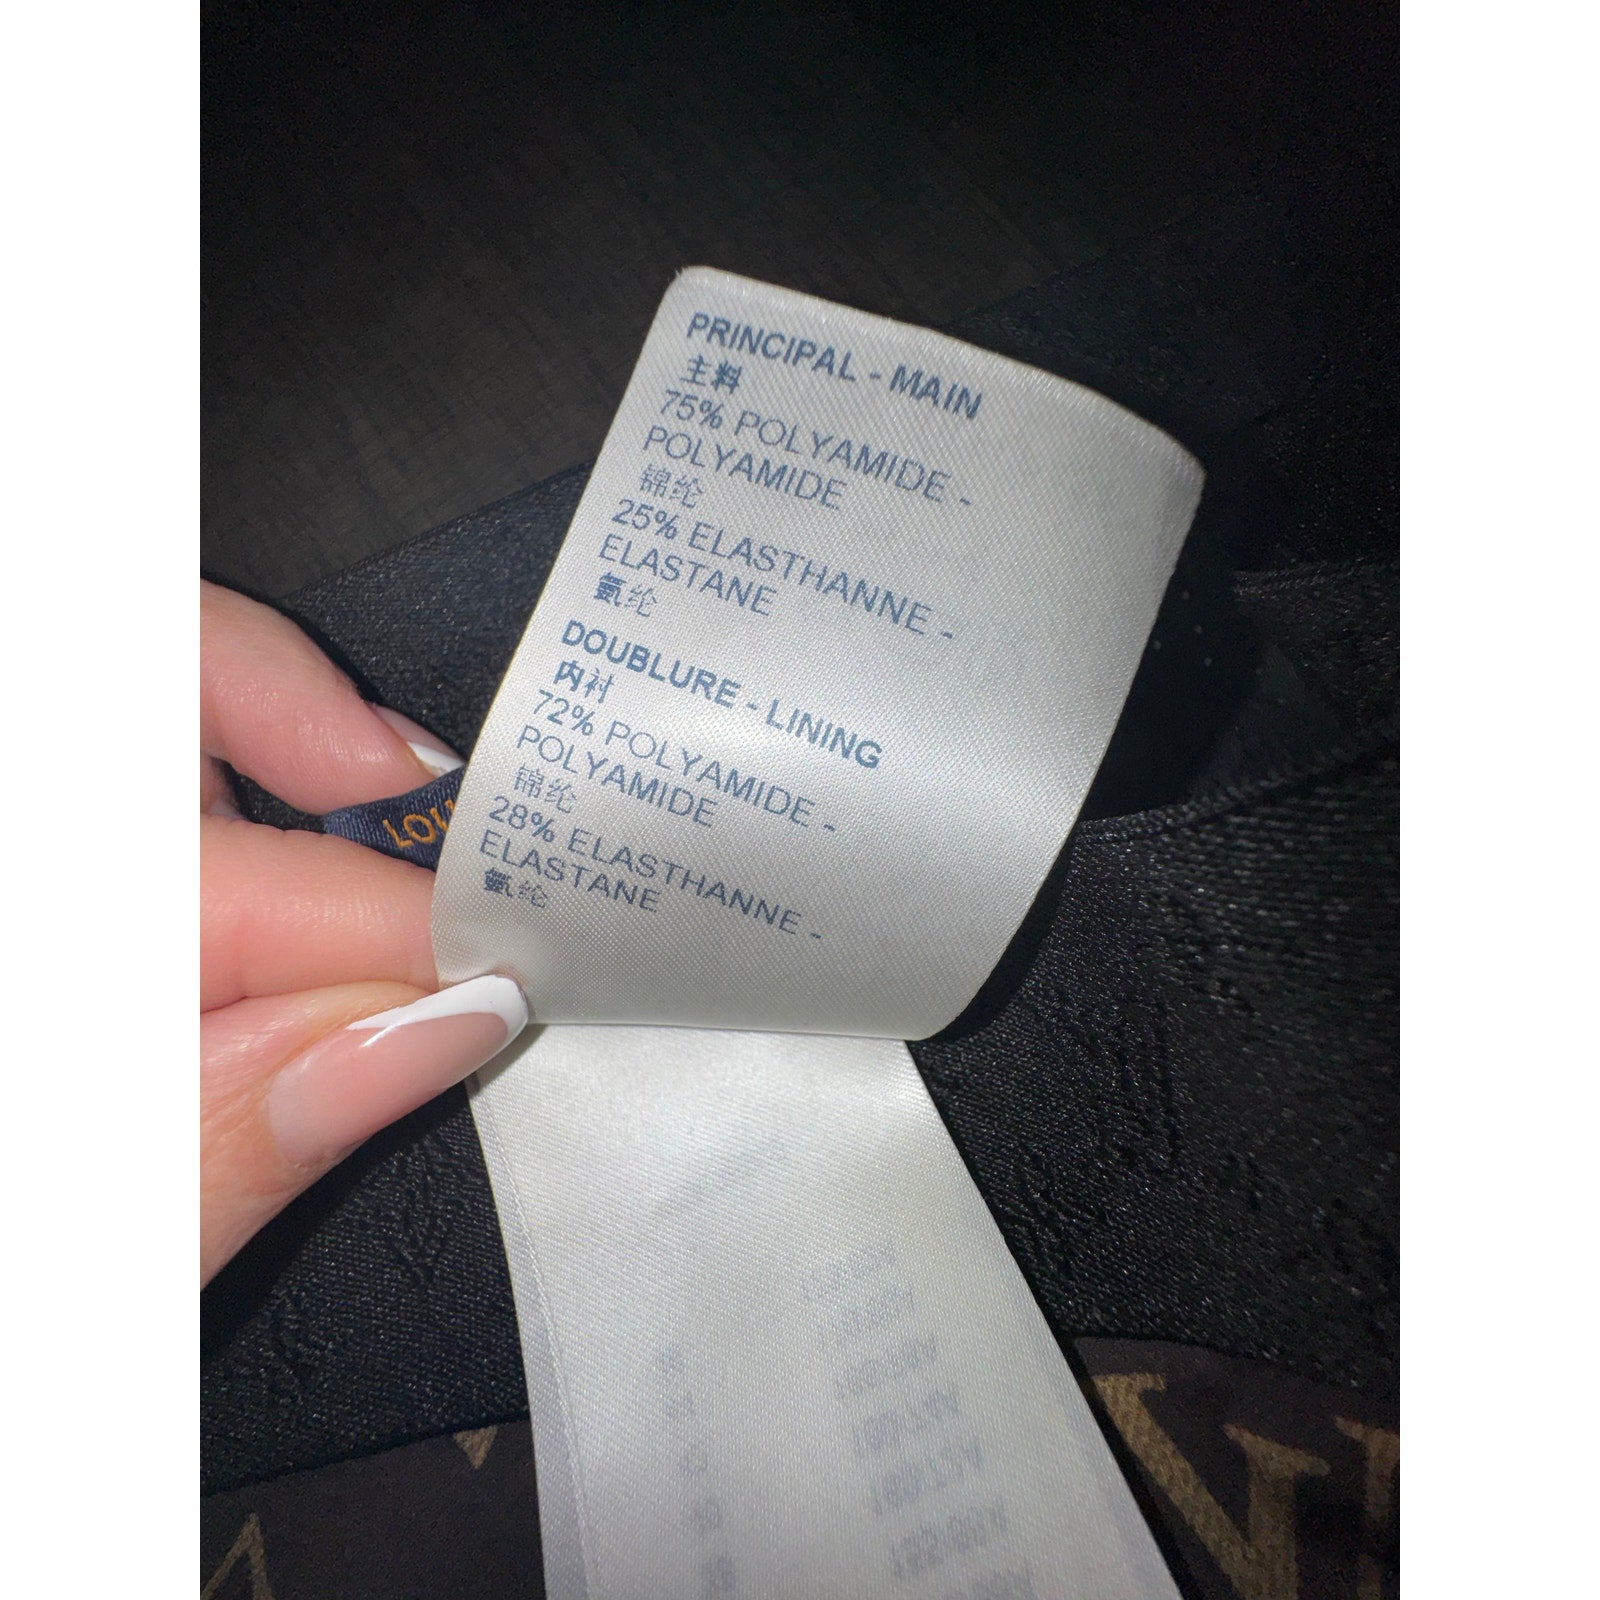 PRINCIPAL - MAIN
主料
75% POLYAMIDE -
POLYAMIDE
锦纶
25% ELASTHANNE -
ELASTANE
氨纶
DOUBLURE - LINING
内衬
72% POLYAMIDE -
POLYAMIDE
锦纶
28% ELASTHANNE -
ELASTANE
氨纶